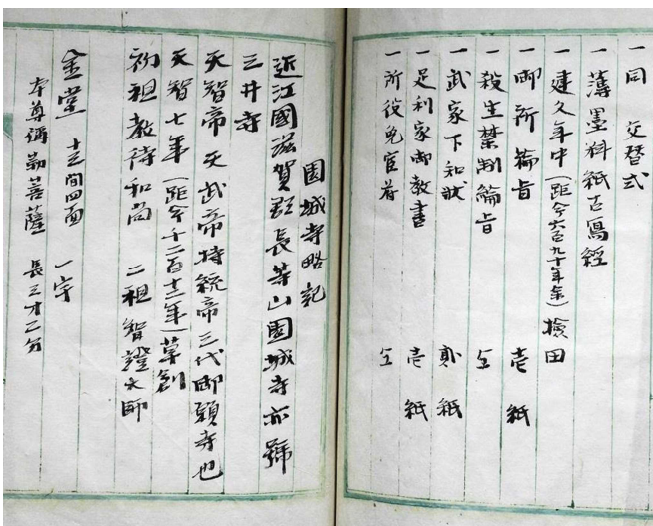 一同 交替式
一薄墨料紙古寫經
一建久年中(距今六百九十年余)検田
一御所綸旨 壱紙
一殺生禁制綸旨 仝
一武家下知状 貳紙
一足利家御教書 壱紙
一所役免官符 仝
園城寺略記
近江國滋賀郡長等山園城寺亦號
三井寺
天智帝 天武帝持統帝三代御願寺也
天智七年(距今千二百十二年)草創
初祖教待和尚 二祖智證大師
金堂 十三間四面 一宇
本尊彌勒菩薩 長三寸二分